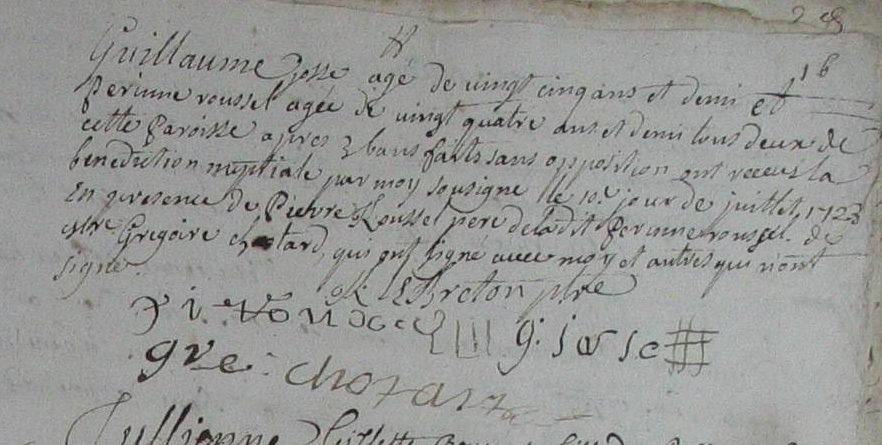 28
16
Guillaume Josse agé de vingt cinq ans et demi et
Perinne roussel agée de vingt quatre ans et demi tous deux de
cette Paroisse apres 3 bans faits sans opposition ont receus la
benediction nuptiale par moy sousigne le 10e jour de juillet 1723
En presence de Pierre Roussel pere de la dit Perinne roussel. de
Gregoire chotard, qui ont signé avec moy et autres qui n'ont
signé.
LeBreton ptre
g: josse
gre: chotart
Jullienne Gillette